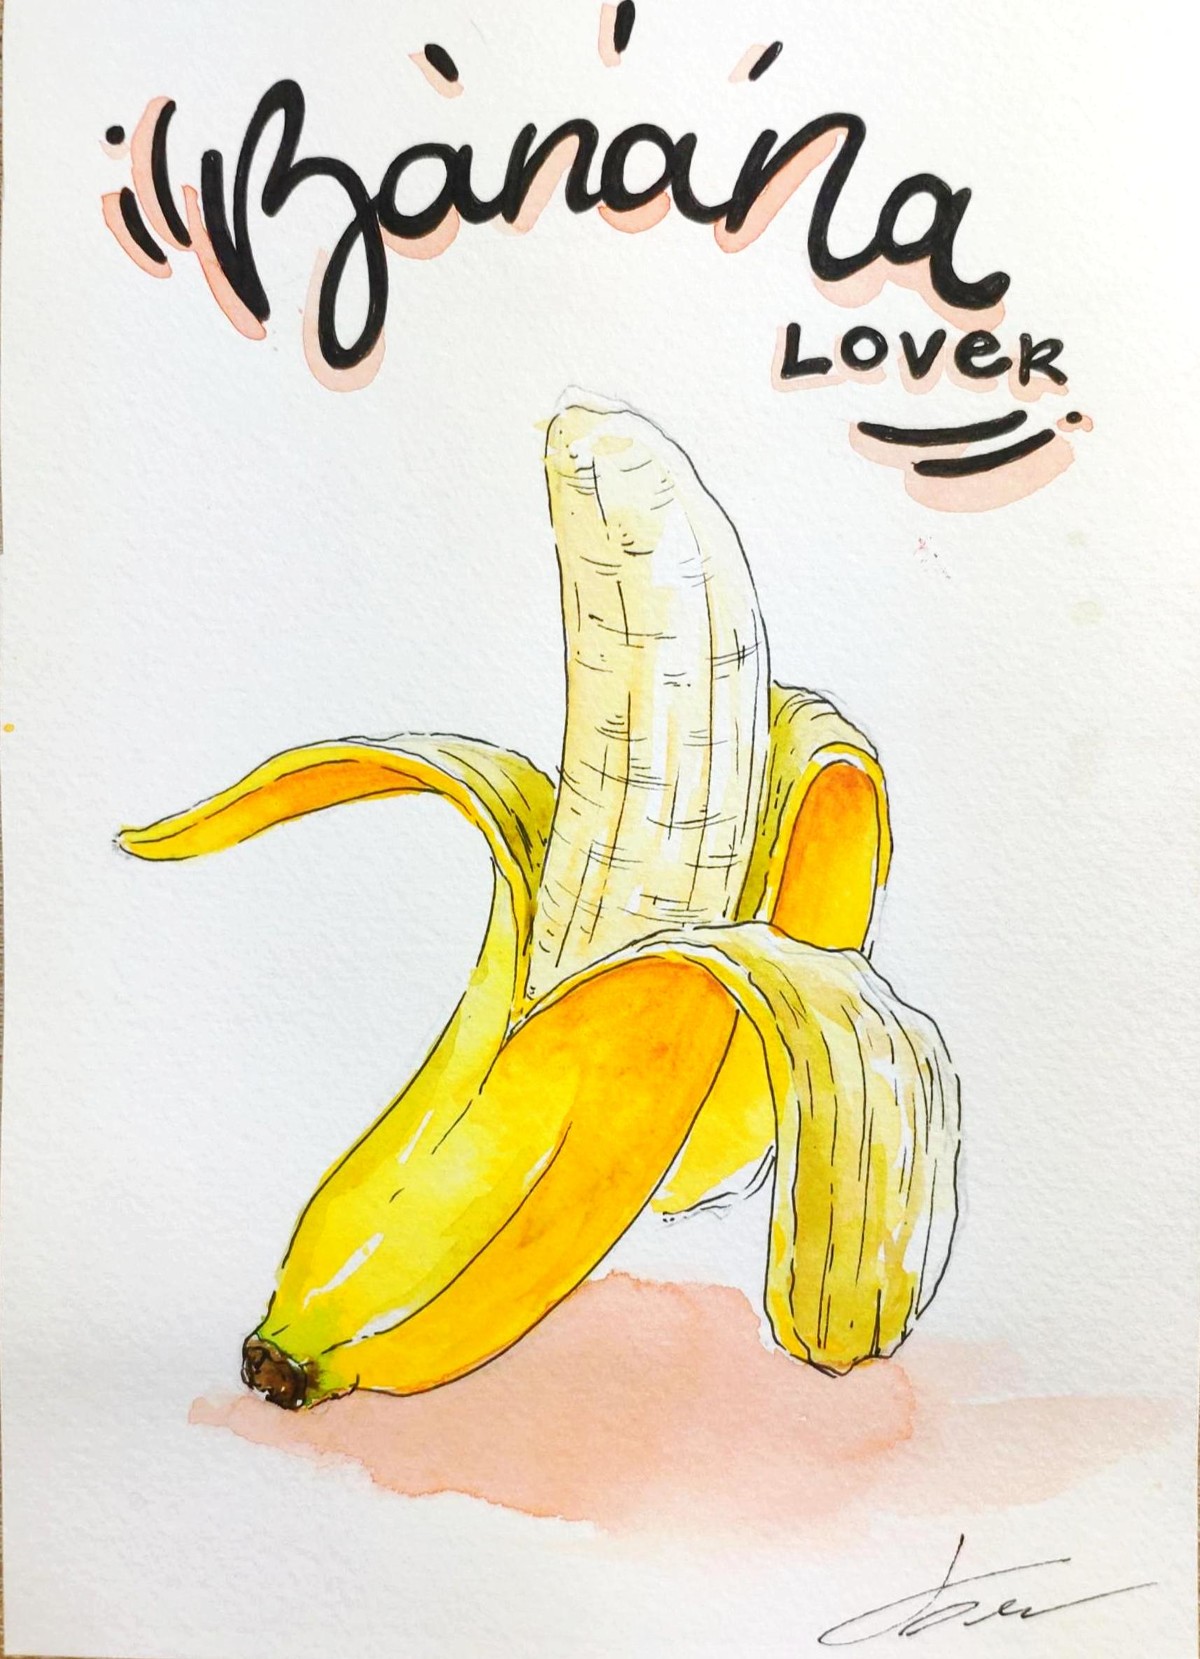 Banana
Lover